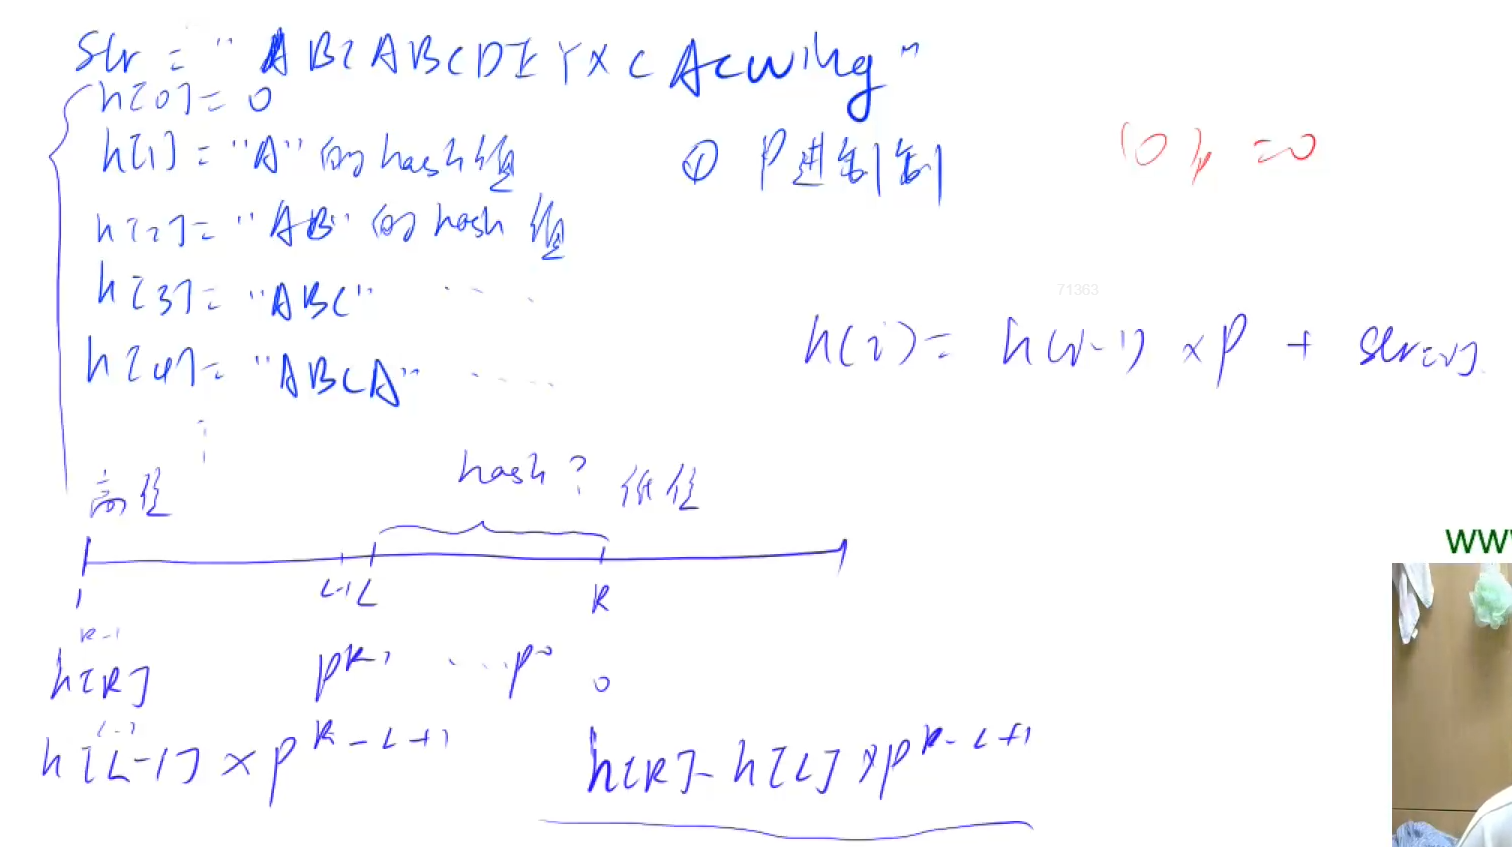 str = "ABCABCDEYXCAcwing"
h[0] = 0
h[1] = "A" 的 hash值
① P进制制
(0)p = 0
h[2] = "AB" 的 hash 值
h[3] = "ABC" ....
71363
h(i) = h(i-1) × P + str[i]
h[4] = "ABCA" ....
hash?
高位
低位
L-1 L
R
1
R-1
h[R]
p^R-1 ... p^0
0
L-1
h[L-1] × p^R-L+1
h[R] - h[L] × p^R-L+1
WW